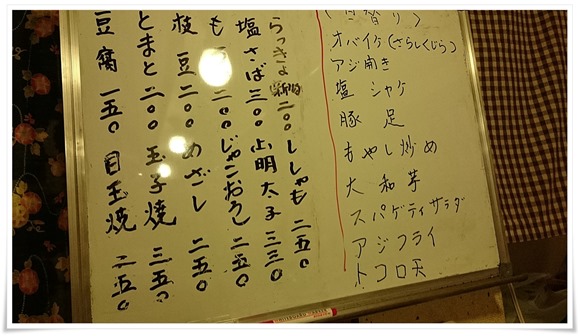 (日替り)
オバイケ(さらしくじら)
アジ開き
塩 シャケ
豚 足
もやし炒め
大 和 芋
スパゲティサラダ
アジフライ
トコロ天
らっきょ 新物 二〇〇 ししゃも 二五〇
塩さば 三〇〇 明太子 三三〇
も 二〇〇 じゃこおろし 二五〇
枝豆 二〇〇 めざし 二五〇
とまと 二〇〇 玉子焼 三五〇
豆腐 一五〇 目玉焼 二五〇